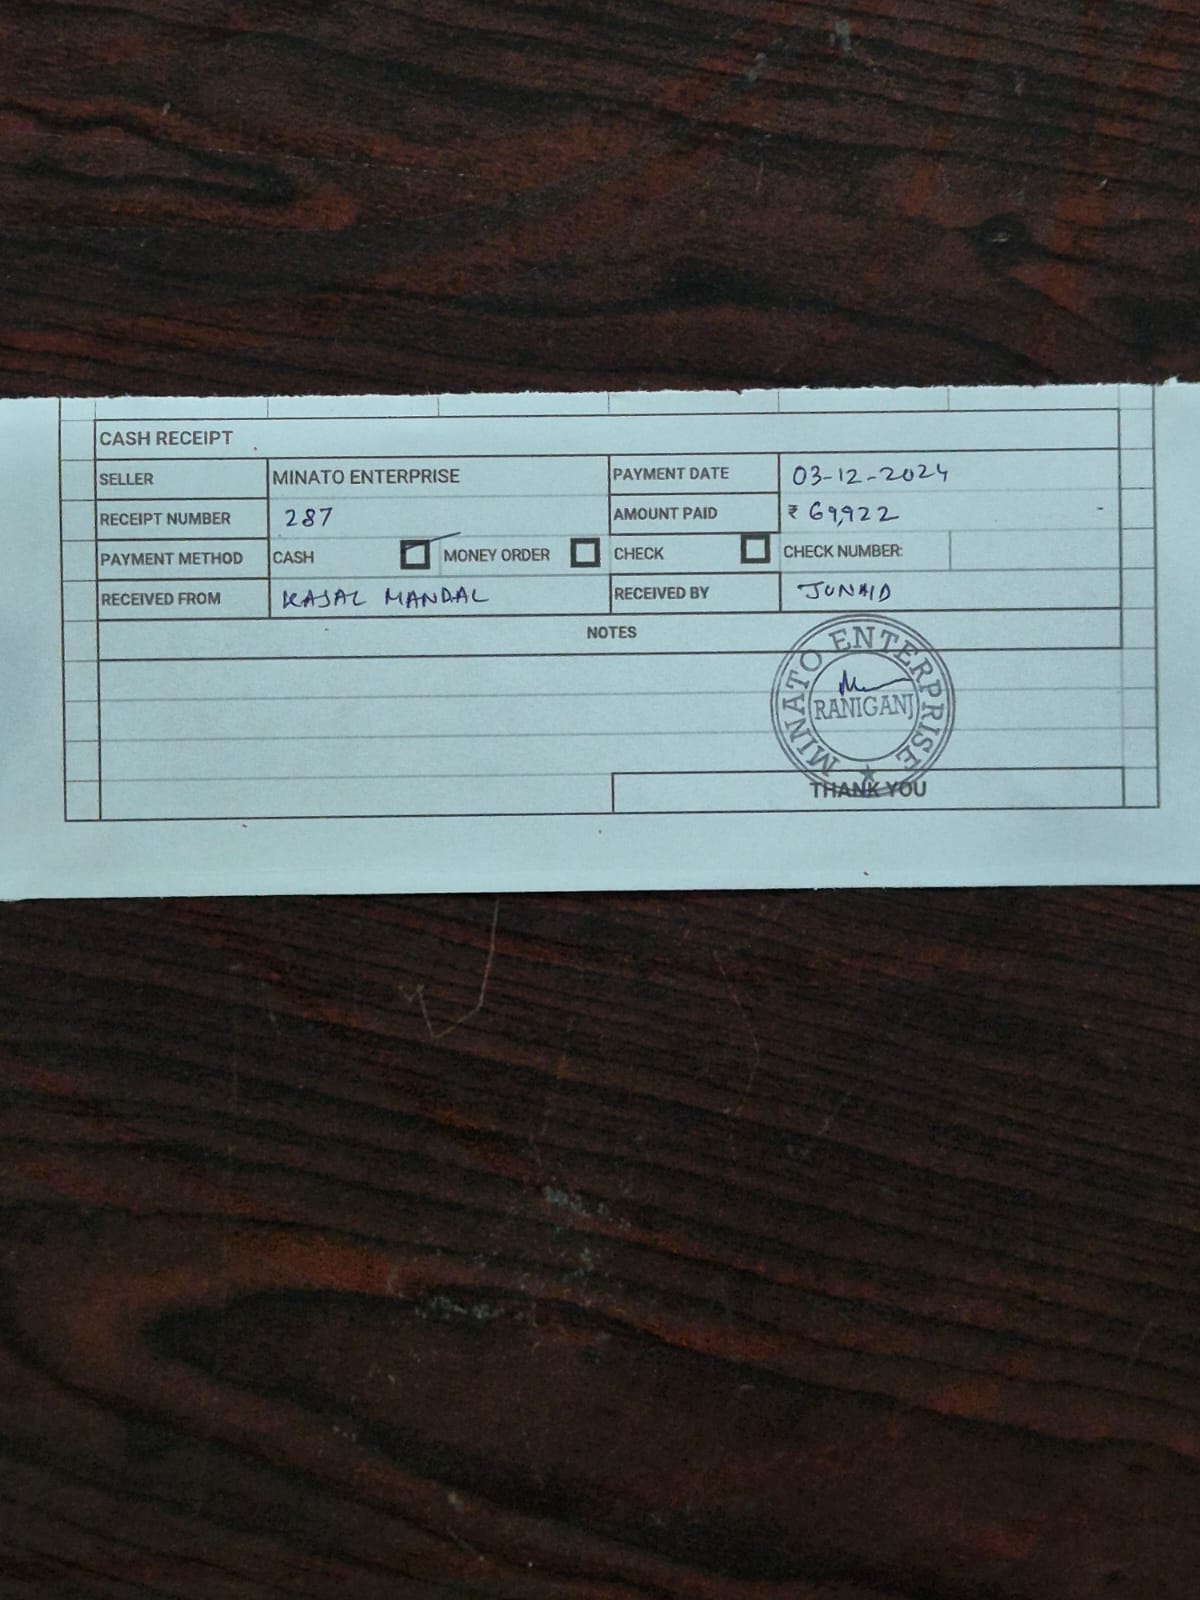 CASH RECEIPT
SELLER MINATO ENTERPRISE PAYMENT DATE 03-12-2024
RECEIPT NUMBER 287 AMOUNT PAID ₹ 69,922
PAYMENT METHOD CASH MONEY ORDER CHECK CHECK NUMBER:
RECEIVED FROM KAJAL MANDAL RECEIVED BY JUNAID
NOTES
MINATO ENTERPRISE
RANIGANJ
THANK YOU